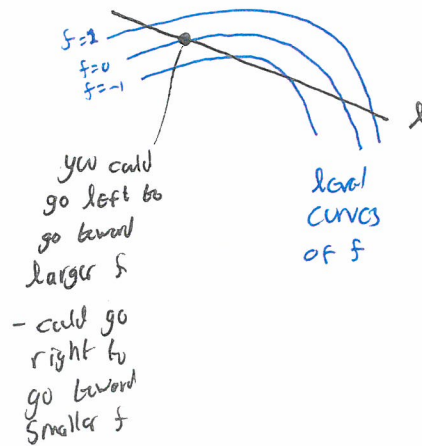 f=1
f=0
f=-1
l
you could
go left to
go toward
larger f
- could go
right to
go toward
smaller f
level
curves
of f